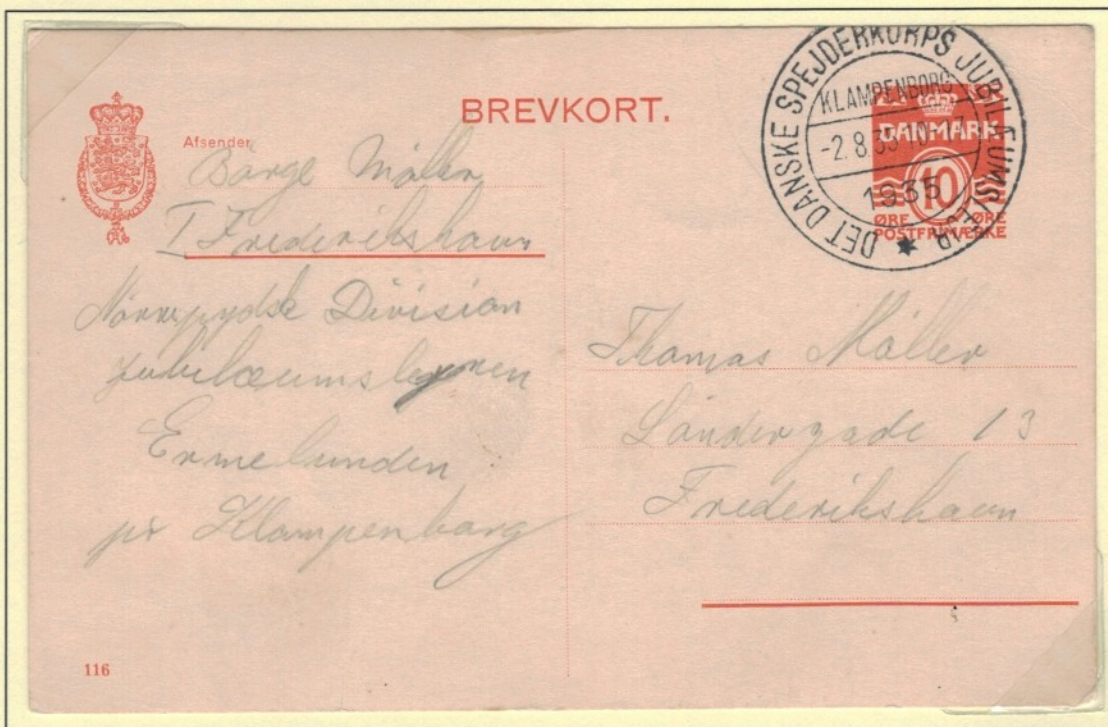 BREVKORT.
Afsender
Børge Møller
I Frederikshavn
Division
jubilæumslejren
Ermelunden
pr Klampenborg
116
DET DANSKE SPEJDERKORPS JUBILÆUMSLEJR
KLAMPENBORG
-2.8.35
1935
DANMARK
10
ØRE ØRE
POSTFRIMÆRKE
Thomas Møller
Søndergade 13
Frederikshavn